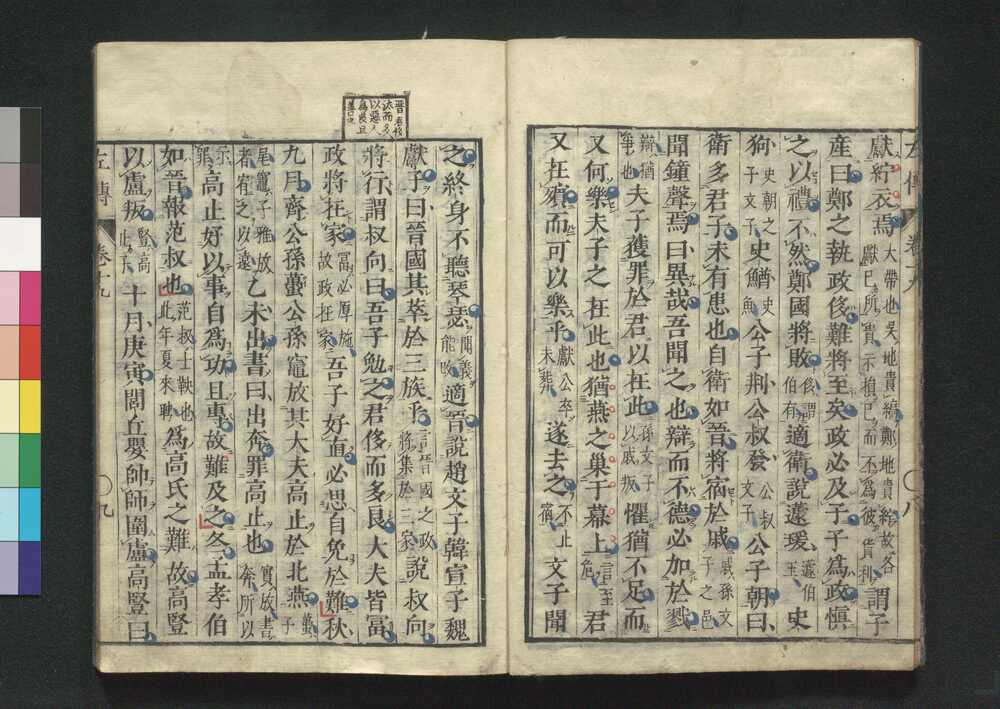 獻紵衣焉大帶也吳地貴縞鄭地貴紵故各獻己所貴示損己而不爲彼貨利謂子
產曰鄭之執政侈難將至矣政必及子子爲政愼
之以禮不然鄭國將敗侈謂伯有適衛說蘧瑗蘧伯玉史
狗史朝之子文子史鰌史魚公子荆公叔發公叔文子公子朝曰
衛多君子未有患也自衛如晉將宿於戚戚孫文子之邑
聞鐘聲焉曰異哉吾聞之也辯而不德必加於戮
辯猶爭也夫子獲罪於君以在此孫文子以戚叛懼猶不足而
又何樂夫子之在此也猶燕之巢于幕上言至危君
又在殯而可以樂乎獻公卒未葬遂去之不止宿文子聞
左傳 卷十九 九
之終身不聽琴瑟聞義能改適晉說趙文子韓宣子魏
獻子曰晉國其萃於三族乎言晉國之政將集於三家說叔向
將行謂叔向曰吾子勉之君侈而多良大夫皆富
政將在家富必厚施故政在家吾子好直必思自免於難秋
九月齊公孫蠆公孫竈放其大夫高止於北燕蠆子
尾竈子雅放者宥之以遠乙未出書曰出奔罪高止也實放書奔所以
示罪高止好以事自爲功且專故難及之冬孟孝伯
如晉報范叔也范叔士鞅也此年夏來聘爲高氏之難故高豎
以盧叛豎高止子十月庚寅閭丘嬰帥師圍盧高豎曰